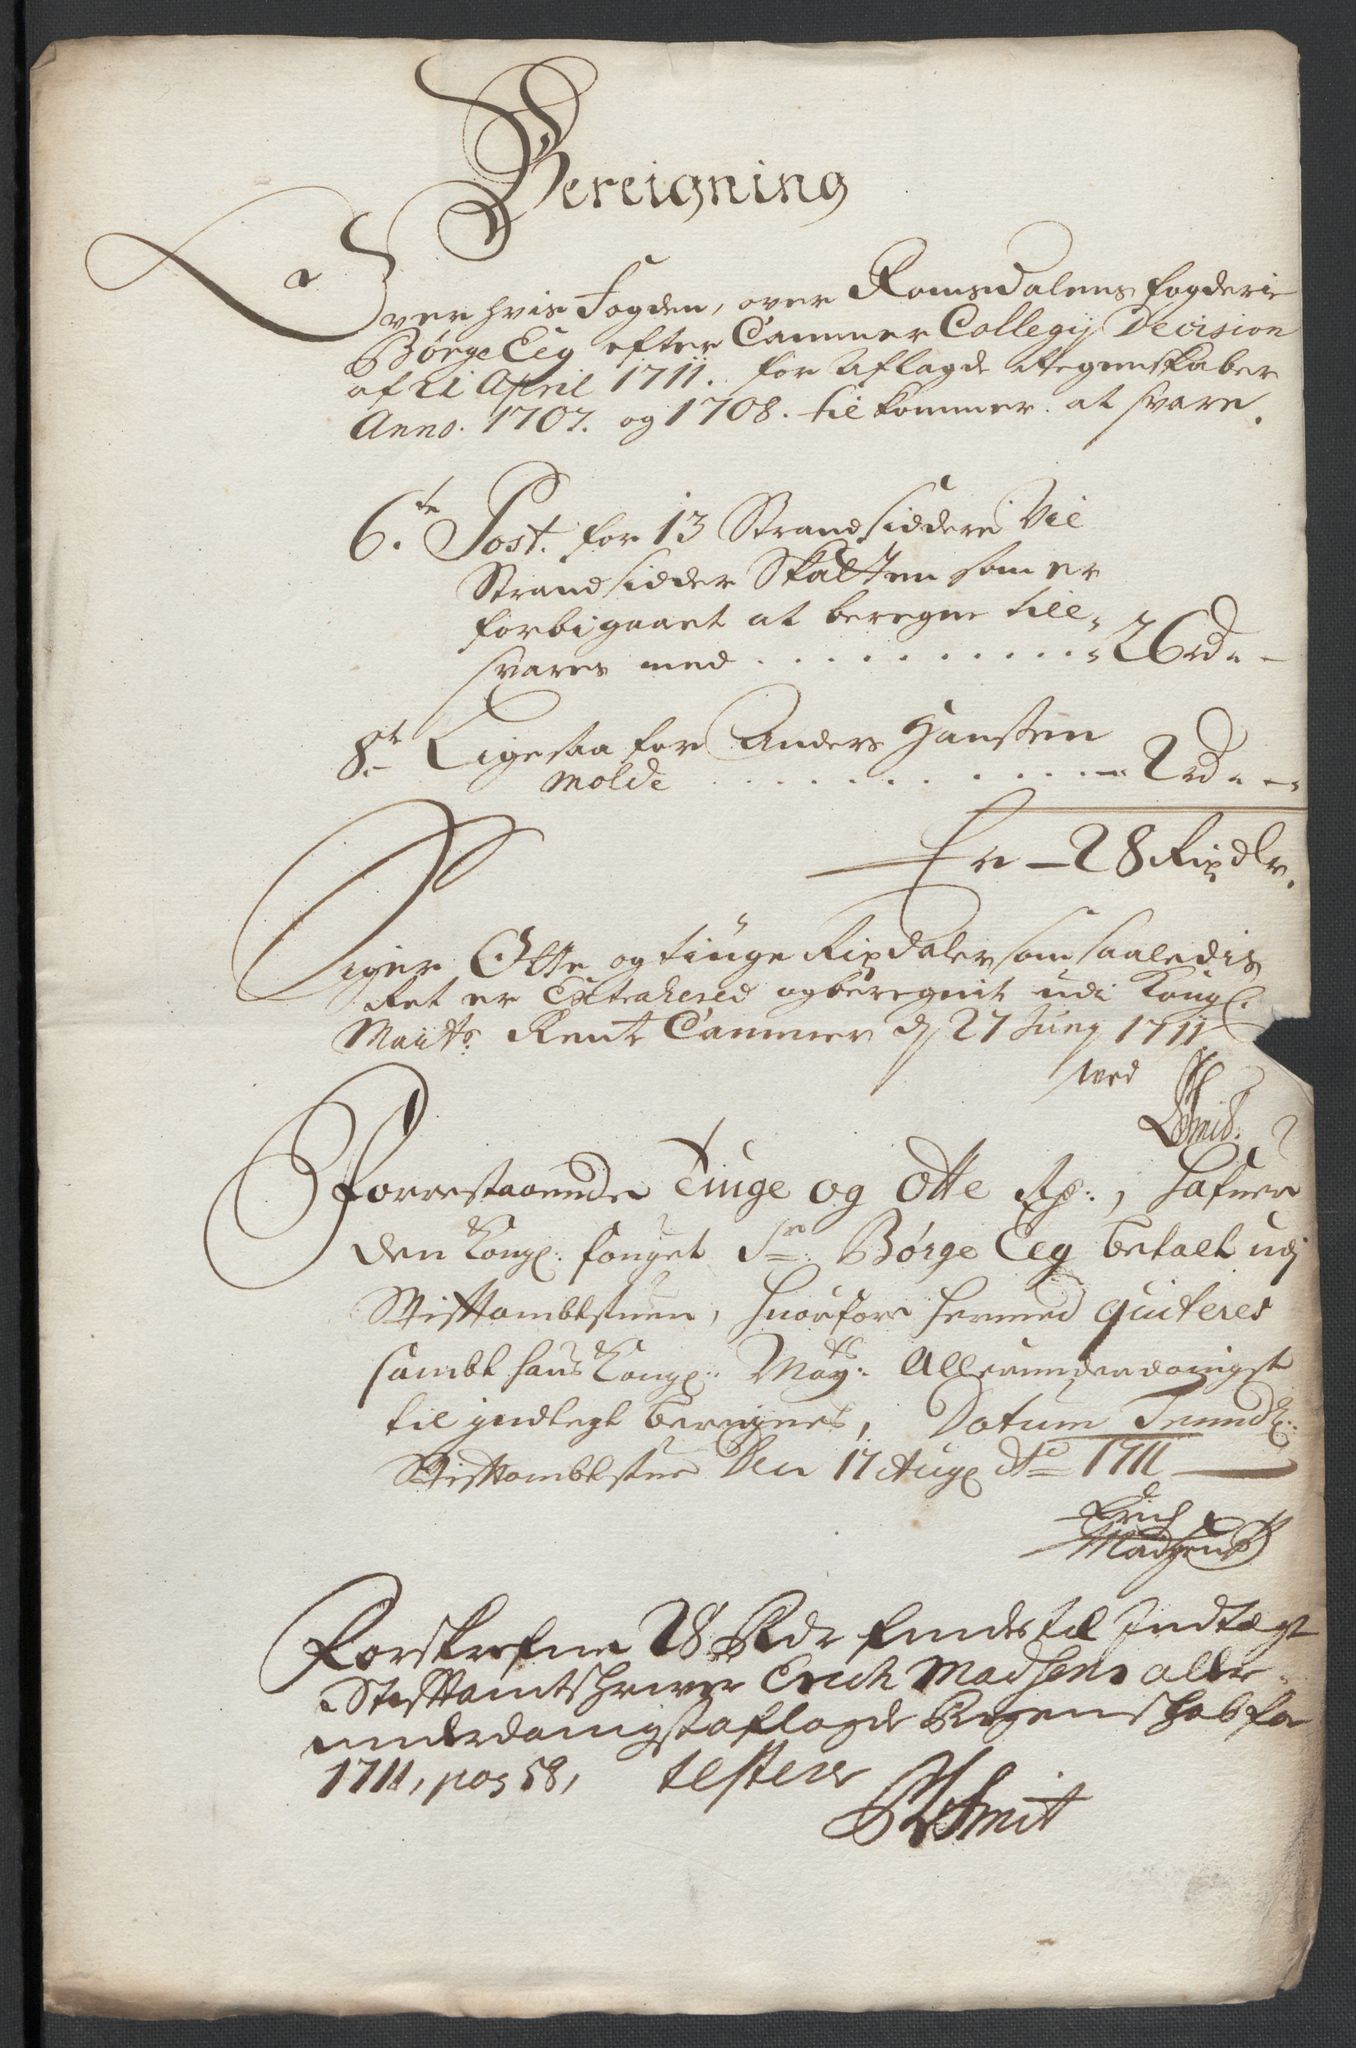 Bereigning
Over hvis Fogden, over Romsdalens fogderie
Børge Eeg efter Cammer Collegij Decision
af 21 April 1711. for aflagde Regenskaber
Anno. 1707. og 1708. tilkommer at svare.
6.te Post. for 13 Strandsiddere Vil
Strandsidder Skatten som er
forbigaaet at beregne till-
svares med . . . . . . . . . . . 26 rd - -
8.t Ligesaa for Anders Hansten
Molde . . . . . . . . . . 2 rd - -
Er - 28 Rixdlr.
Siger Otte og tiuge Rixdaler som saaledis
Ret er Extraheret og beregnit udi Kongl.
Maiits Rente Cammer d 27 Juny 1711
ved
Smid.
Forrestaaende Tiuge og Otte Rx:, hafuer
den Kongl: fouget Sr: Børge Eeg betalt udj
Stiftambtstuen, huorfore hermed quiteres
sambt hans Kongl: May:ts Allerunderdanigst
til jndtegt berignes, Datum Trundh:
Stiftambtstue Den 17 Aug Ao 1711
Erich
Madsen
Forskrefne 28 Rdr findes til Indtægt
i Stiftamtschriver Erich Madsens aller-
underdanigst aflagde Regenschab for
1711, pag 58, testerer
Schmit